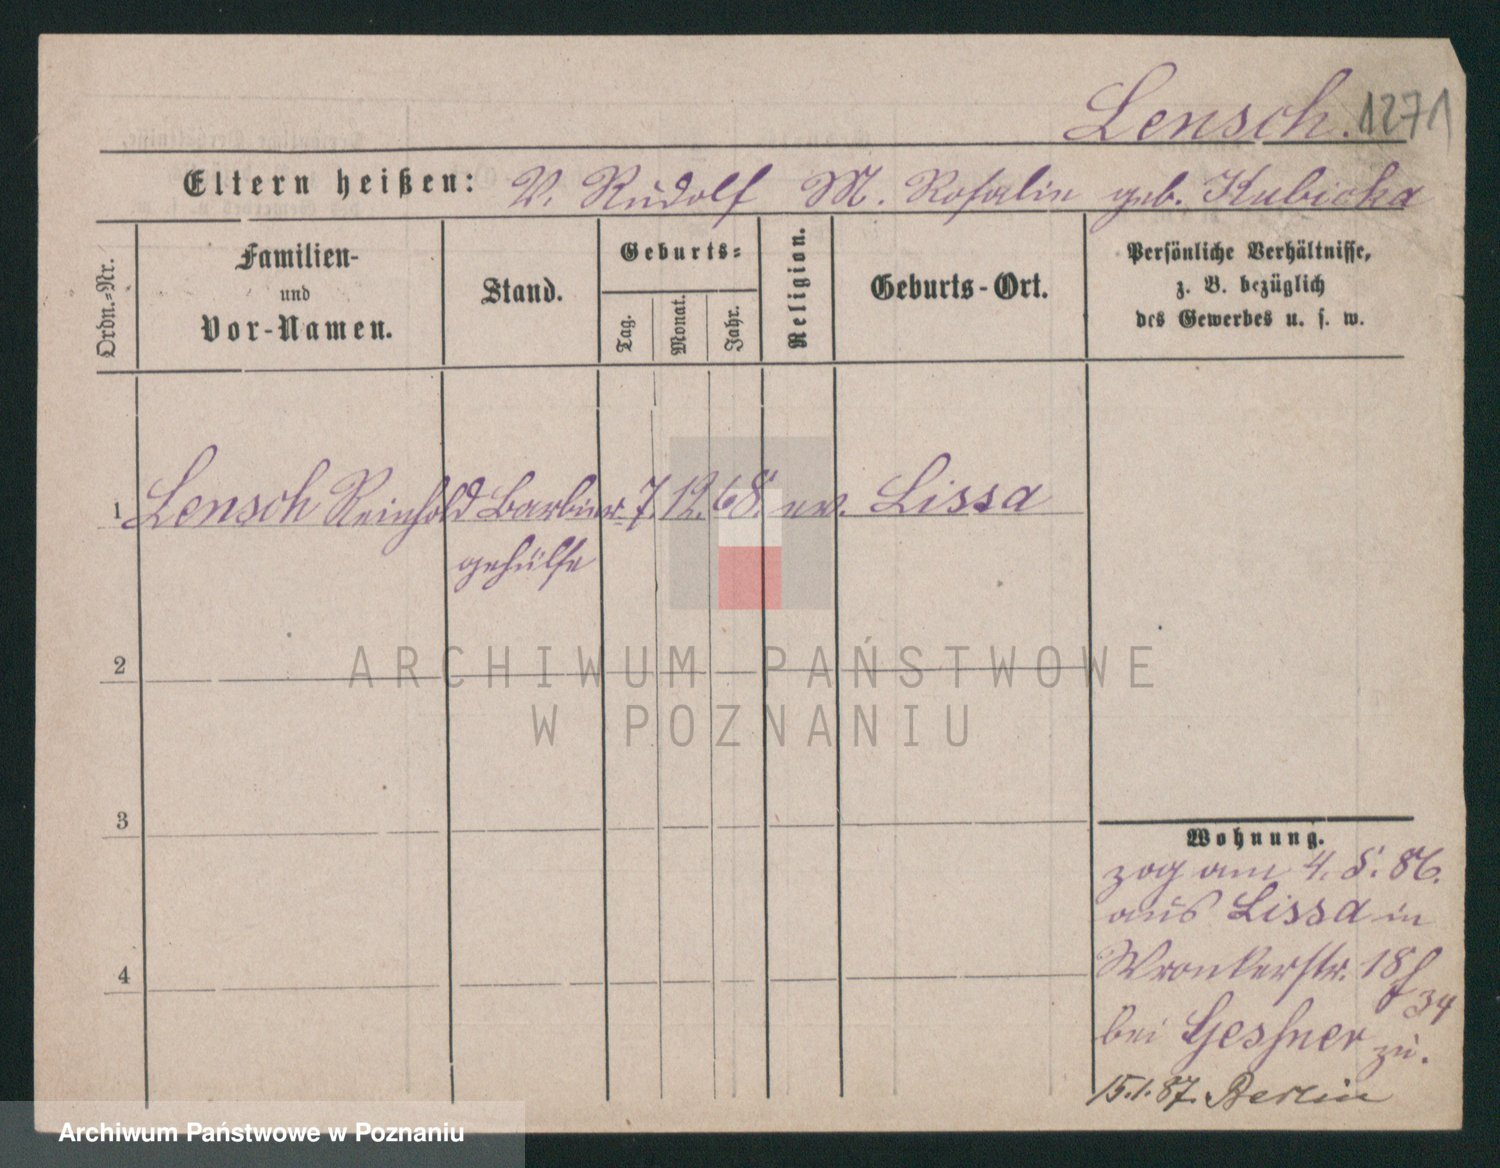 Lensch. 1271
Eltern heißen: V. Rudolf M. Rosalie geb. Kubicka
Ordn.-Nr.
Familien-
und
Vor-Namen.
Stand.
Geburts-
Tag.
Monat.
Jahr.
Religion.
Geburts-Ort.
Persönliche Verhältnisse,
z. B. bezüglich
des Gewerbes u. s. w.
1 Lensch Reinhold Barbier- 7. 12. 68. ev. Lissa
gehülfe
2
3
4
Wohnung.
zog am 4. 5. 86.
aus Lissa in
Wronkerstr. 18
34
bei Gessner zu.
15.1.87. Berlin
ARCHIWUM PAŃSTWOWE
W POZNANIU
Archiwum Państwowe w Poznaniu